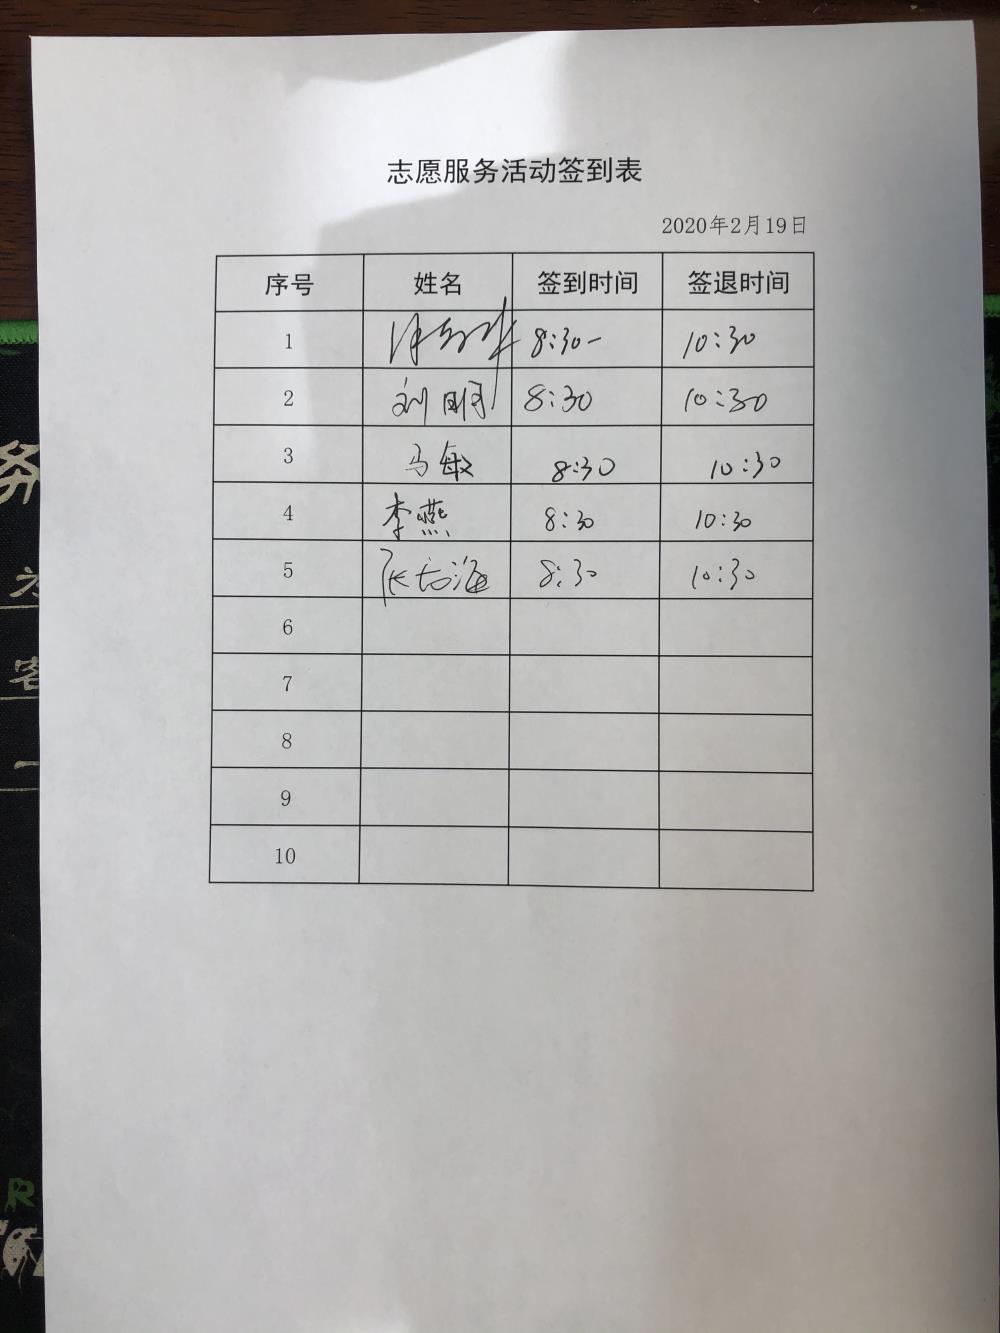 志愿服务活动签到表
2020年2月19日
序号 姓名 签到时间 签退时间
1 8:30- 10:30
2 刘明 8:30 10:30
3 马敏 8:30 10:30
4 李燕 8:30 10:30
5 张志海 8:30 10:30
6
7
8
9
10
务
客
一
R